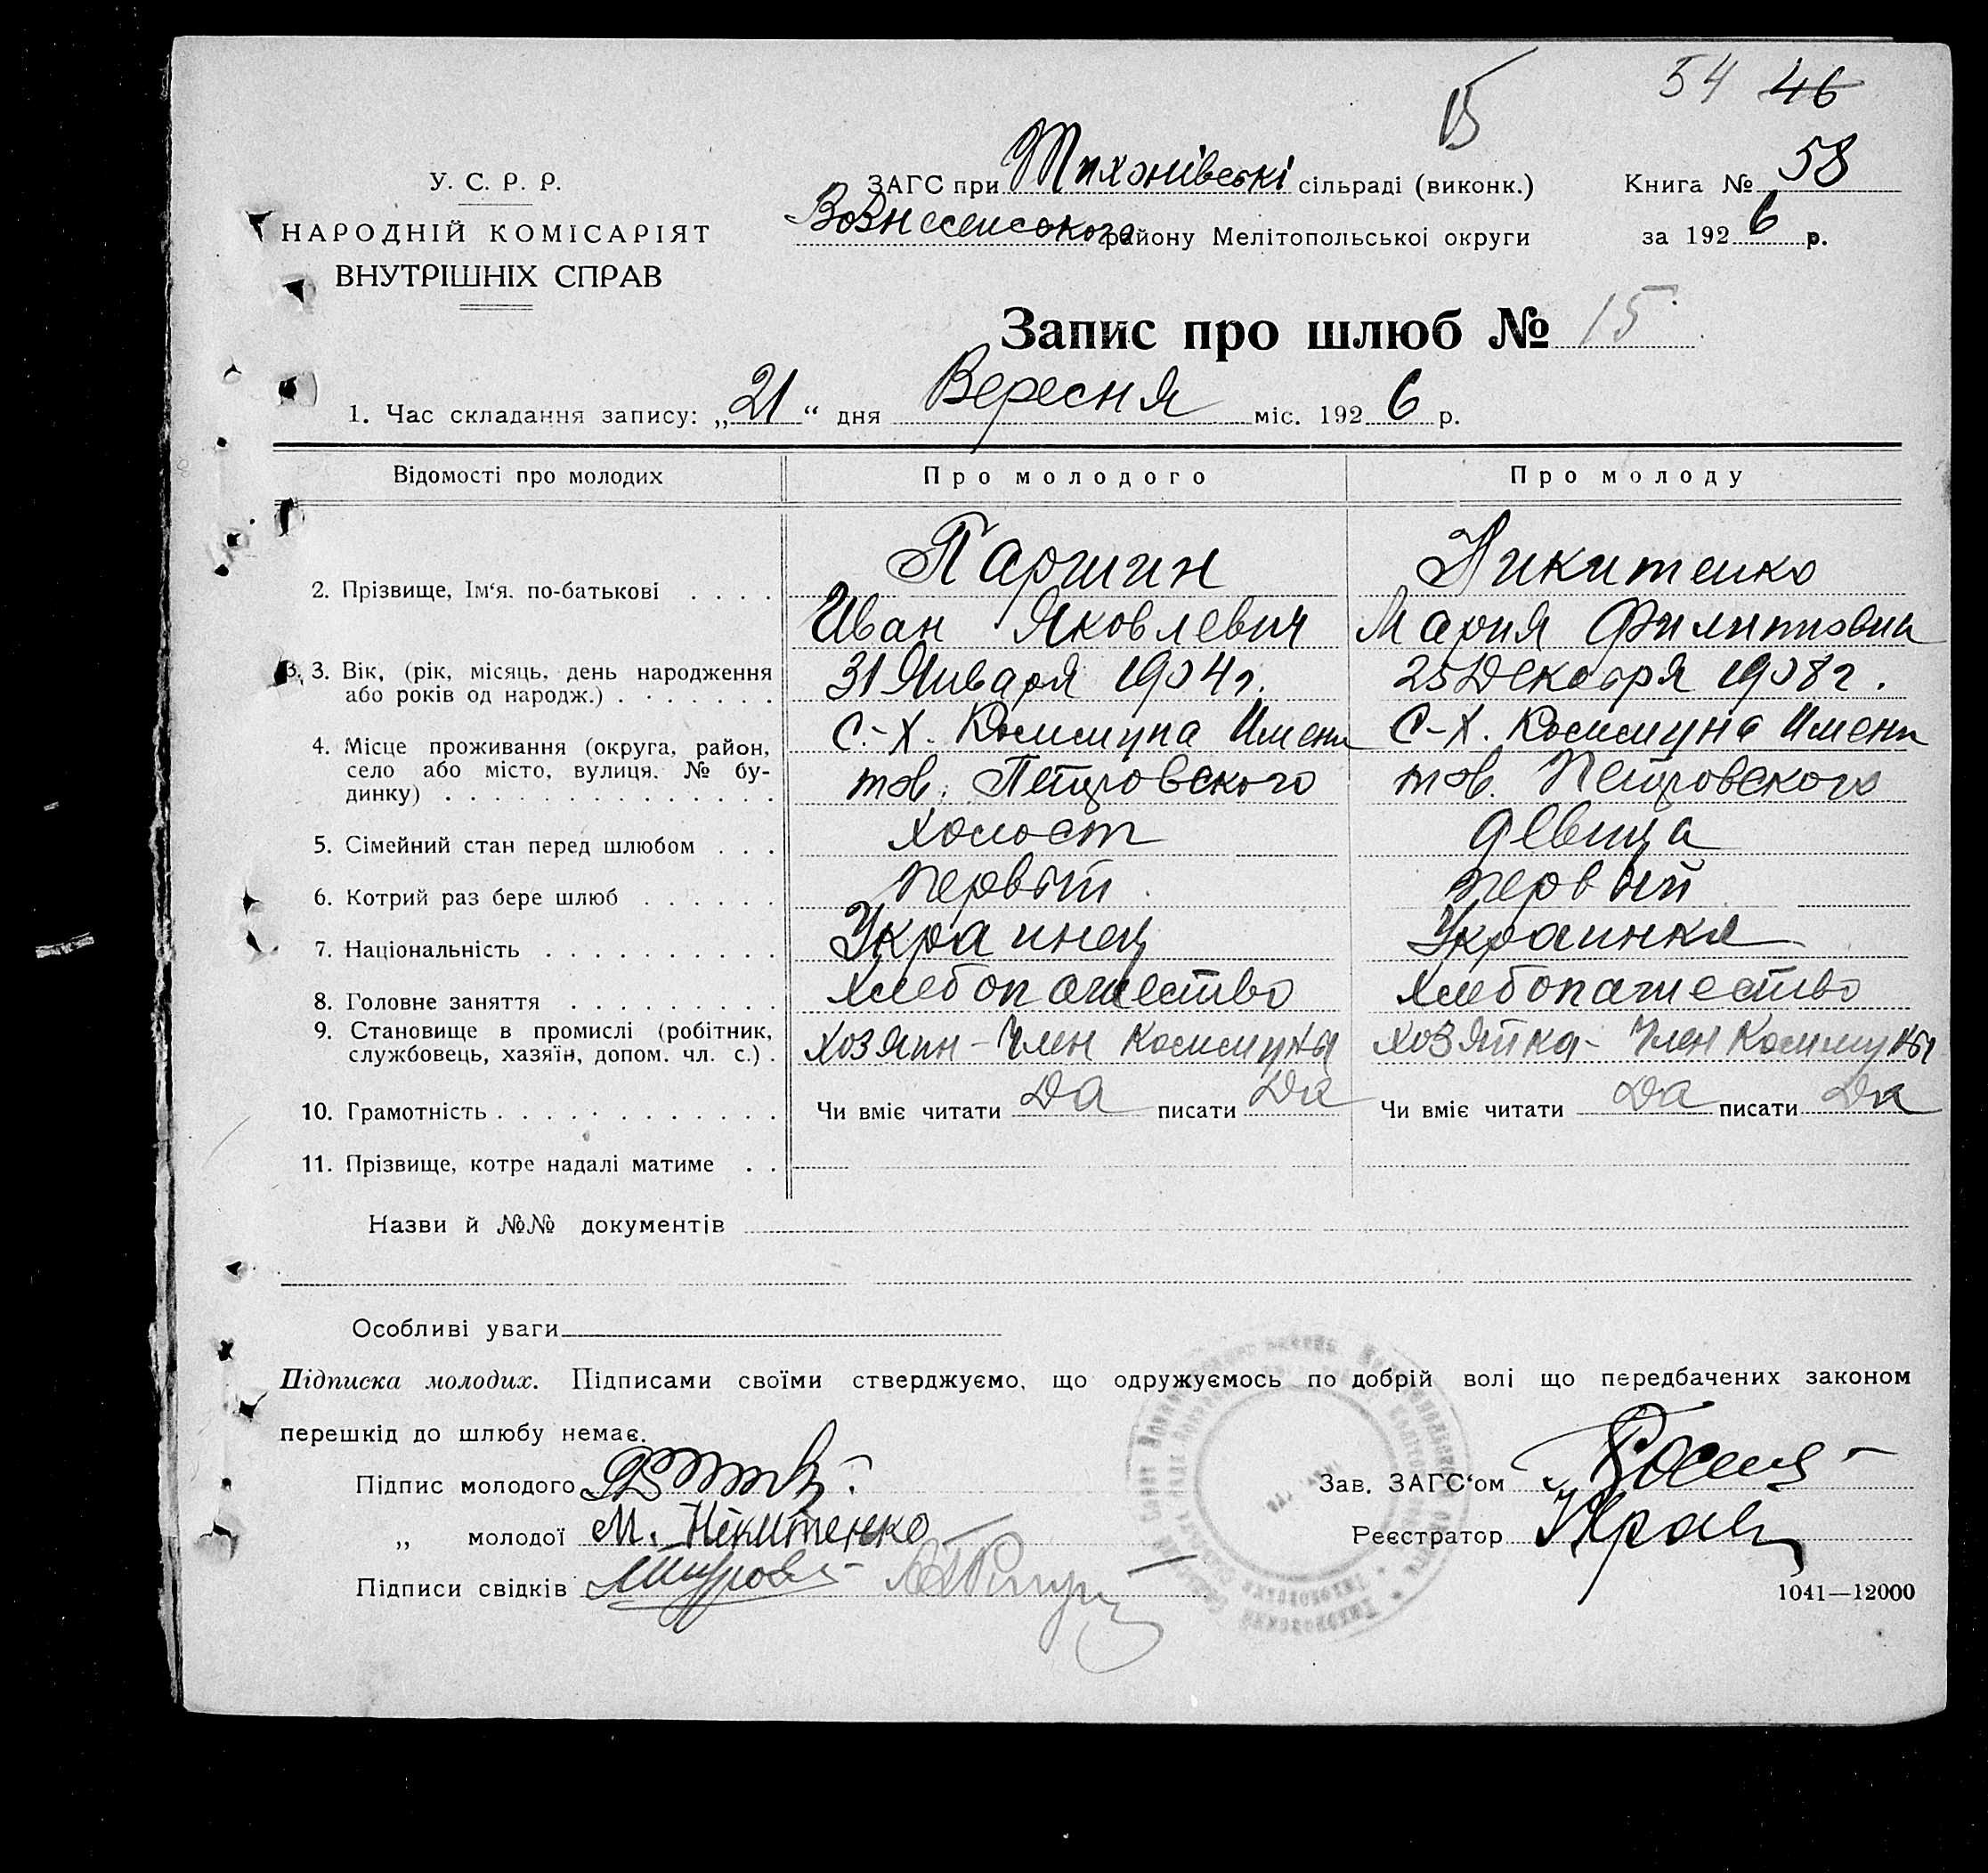 54 46
15
У. С. Р. Р.
НАРОДНІЙ КОМІСАРІЯТ
ВНУТРІШНІХ СПРАВ
ЗАГС при Тихонівські сільраді (виконк.)
Вознесенського району Мелітопольськоі округи
Книга № 58
за 1926 р.
Запис про шлюб № 15
1. Час складання запису: „21“ дня Вересня міс. 1926 р.
Відомості про молодих Про молодого Про молоду
2. Прізвище, Ім‘я. по-батькові . . . . Паршин Никитенко
Иван Яковлевич Мария Филипповна
3. Вік, (рік, місяць, день народження 31 Января 1904г. 25 Декабря 1908г.
або років од народж.) . . . . . . .
4. Місце проживання (округа, район, С.-Х. Коммуна Имени С-Х. Коммуна Имени
село або місто, вулиця. № бу- тов. Петровского тов. Петровского
динку) . . . . . . . . . . . . . .
5. Сімейний стан перед шлюбом . . . холост девица
6. Котрий раз бере шлюб . . . . . . первый первый
7. Національність . . . . . . . . . . Украинец Украинка
8. Головне заняття . . . . . . . . . хлебопашество хлебопашество
9. Становище в промислі (робітник,
службовець, хазяїн, допом. чл. с.) . хозяин - Член Коммуны хозяйка - Член Коммуны
10. Грамотність . . . . . . . . . . . . Чи вміє читати Да писати Да Чи вміє читати Да писати Да
11. Прізвище, котре надалі матиме . .
Назви й №№ документів
Особливі уваги
Підписка молодих. Підписами своїми стверджуємо, що одружуємось по добрій волі що передбачених законом
перешкід до шлюбу немає.
Підпис молодого
Зав. ЗАГС‘ом
„ молодої М. Нікитенко
Реєстратор
Підписи свідків
1041—12000